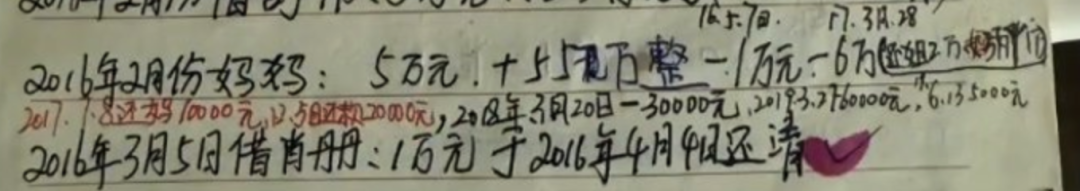 16.5.7日. 17.3月.28
2016年2月份妈妈: 5万元.+5.5万整-1万元-6万(还姐2万
2017.7.8还妈10000元,12.5日还款20000元,2018年3月20日-30000元,2019.3.2760000元,6.135000元
2016年3月5日借肖丹丹:1万元于2016年4月4日还清